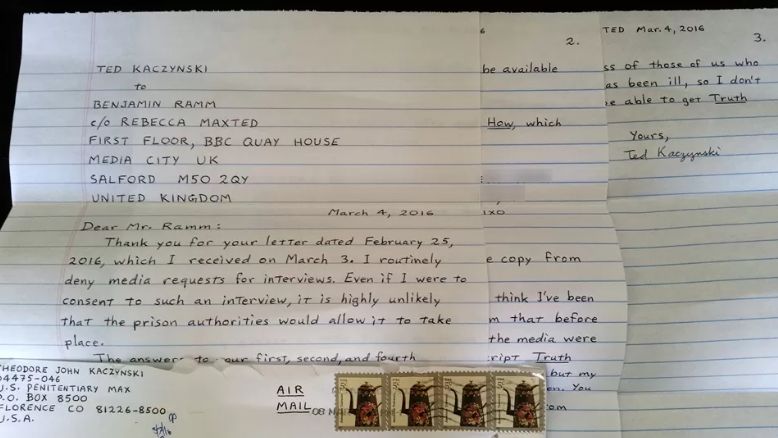 TED KACZYNSKI
to
BENJAMIN RAMM
c/o REBECCA MAXTED
FIRST FLOOR, BBC QUAY HOUSE
MEDIA CITY UK
SALFORD M50 2QY
UNITED KINGDOM
March 4, 2016
Dear Mr. Ramm:
Thank you for your letter dated February 25,
2016, which I received on March 3. I routinely
deny media requests for interviews. Even if I were to
consent to such an interview, it is highly unlikely
that the prison authorities would allow it to take
place.
The answers to our first, second, and fourth
2.
be available
How, which
e copy from
think I've been
m that before
the media were
ript Truth
but my
You
TED Mar. 4, 2016
3.
ss of those of us who
as been ill, so I don't
be able to get Truth
Yours,
Ted Kaczynski
THEODORE JOHN KACZYNSKI
04475-046
U.S. PENITENTIARY MAX
P.O. BOX 8500
FLORENCE CO 81226-8500
U.S.A.
AIR
MAIL